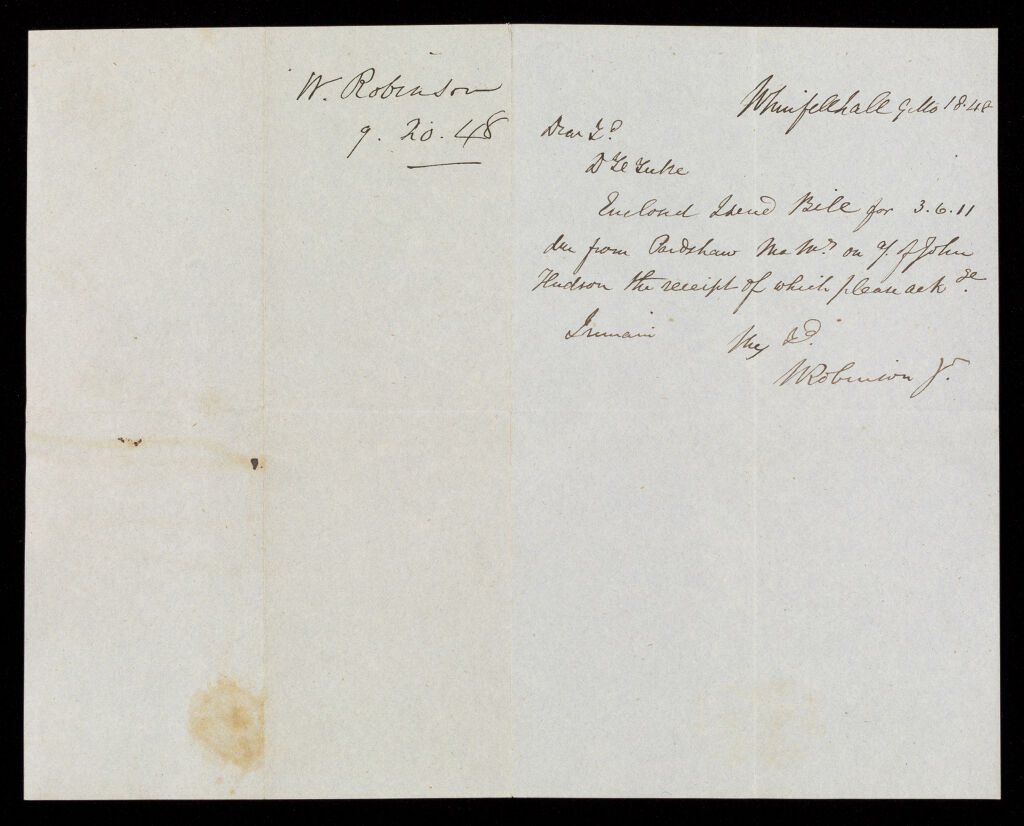 W. Robinson
9. 20. 48
Whinfellhall 9 Mo 18.48
Dear Fd
D H Tuke
Enclosed I send Bill for 3.6.11
due from Pardshaw Mo Mg on a/ of John
Hudson the receipt of which please ack ge.
I remain
Thy Fd.
WRobinson Jr.